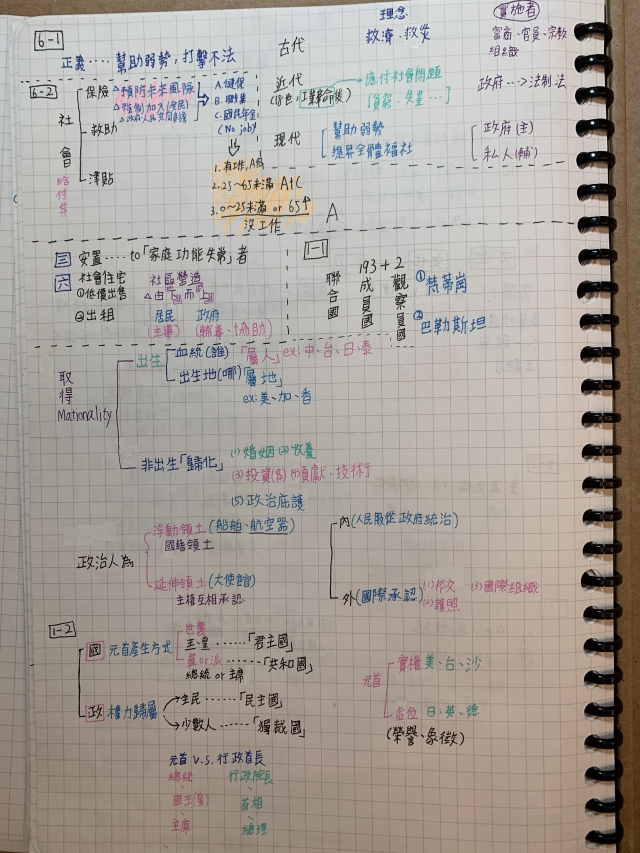 6-1
正義‥‥幫助弱勢,打擊不法
理念
實施者
古代
救濟、救災
富商、官員、宗教
組織
近代
(18世,工業革命後)
應付社會問題
[貧窮、失業…]
政府--->法制法
現代
幫助弱勢
提昇全體福社
政府(主)
私人(輔)
6-2
社會
給付等
保險
△預防未來風險
△強制加入(全民)
A.健保
B.職業
C.國民年金
(No job)
救助
津貼
1.有工作,A+B
2.25~65未滿 A+C
3.0~25未滿 or 65↑
沒工作
A
三 安置‥‥to「家庭功能失常」者
六 社會住宅
①低價出售
②出租
社區營造
△由下而上
居民
(主導)
政府
(輔導、協助)
1-1
聯合國
193+2
成員國
觀察員國
①梵蒂岡
②巴勒斯坦
取得
Mationality
出生
血統(誰)「屬人」ex:中、台、日、泰
出生地(哪)「屬地」
ex:美、加、香
非出生「歸化」
(1)婚姻 (2)收養
(3)投資(臣) (4)貢獻、技術
(5)政治庇護
政治人為
浮動領土(船舶、航空器)
國籍領土
延伸領土(大使館)
主權互相承認
內(人民服從政府統治)
外(國際承認)
(1)邦交
(2)護照
(3)國際組織
1-2
國 元首產生方式
世襲
王、皇‥‥‥「君主國」
選or派‥‥‥「共和國」
總統 or 主席
政 權力歸屬
主民‥‥‥「民主國」
少數人‥‥‥「獨裁國」
元首
實權 美、台、沙
虛位 日、英、德
(榮譽、象徵)
元首 v.s. 行政首長
總統 行政院長
國王(皇) 首相
主席 總理